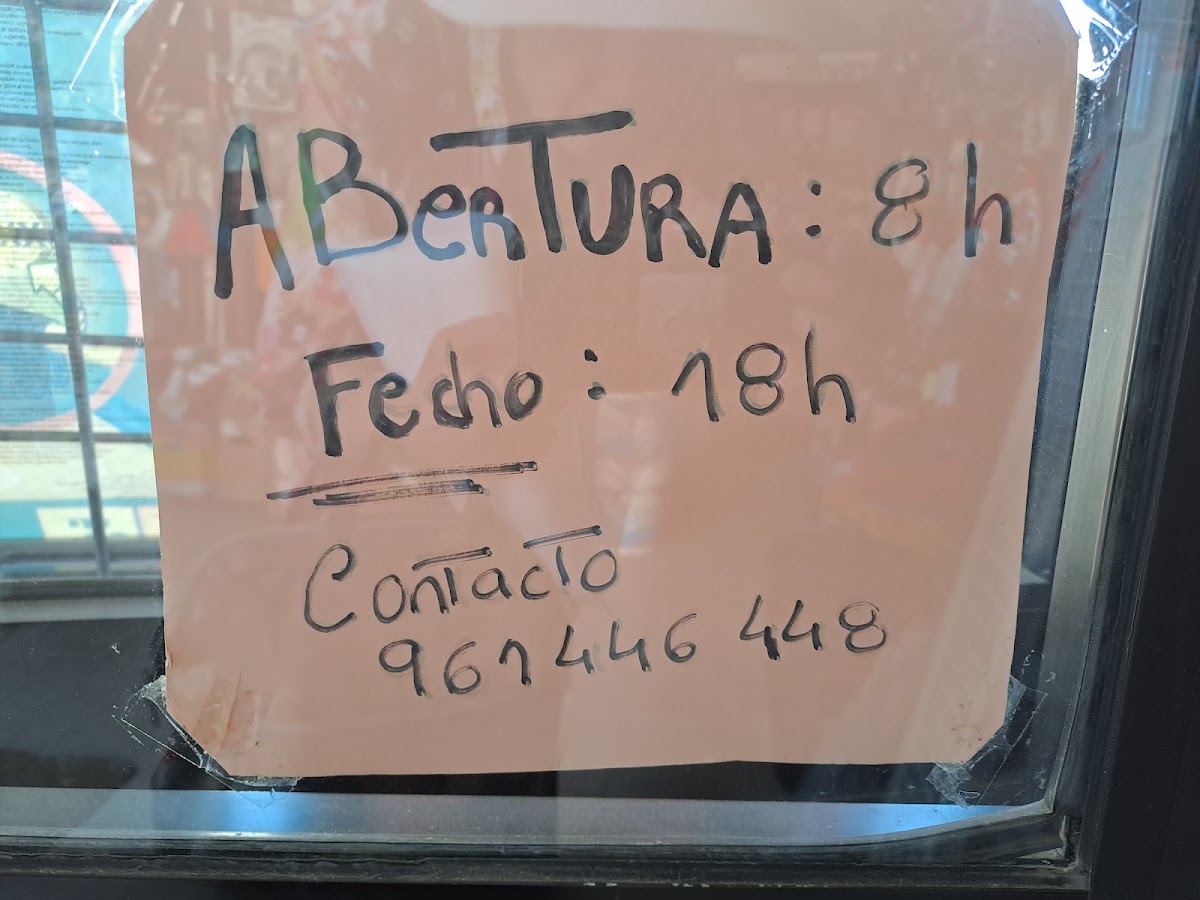 ABerTURA: 8h
Fecho: 18h
Contacto
961446 448